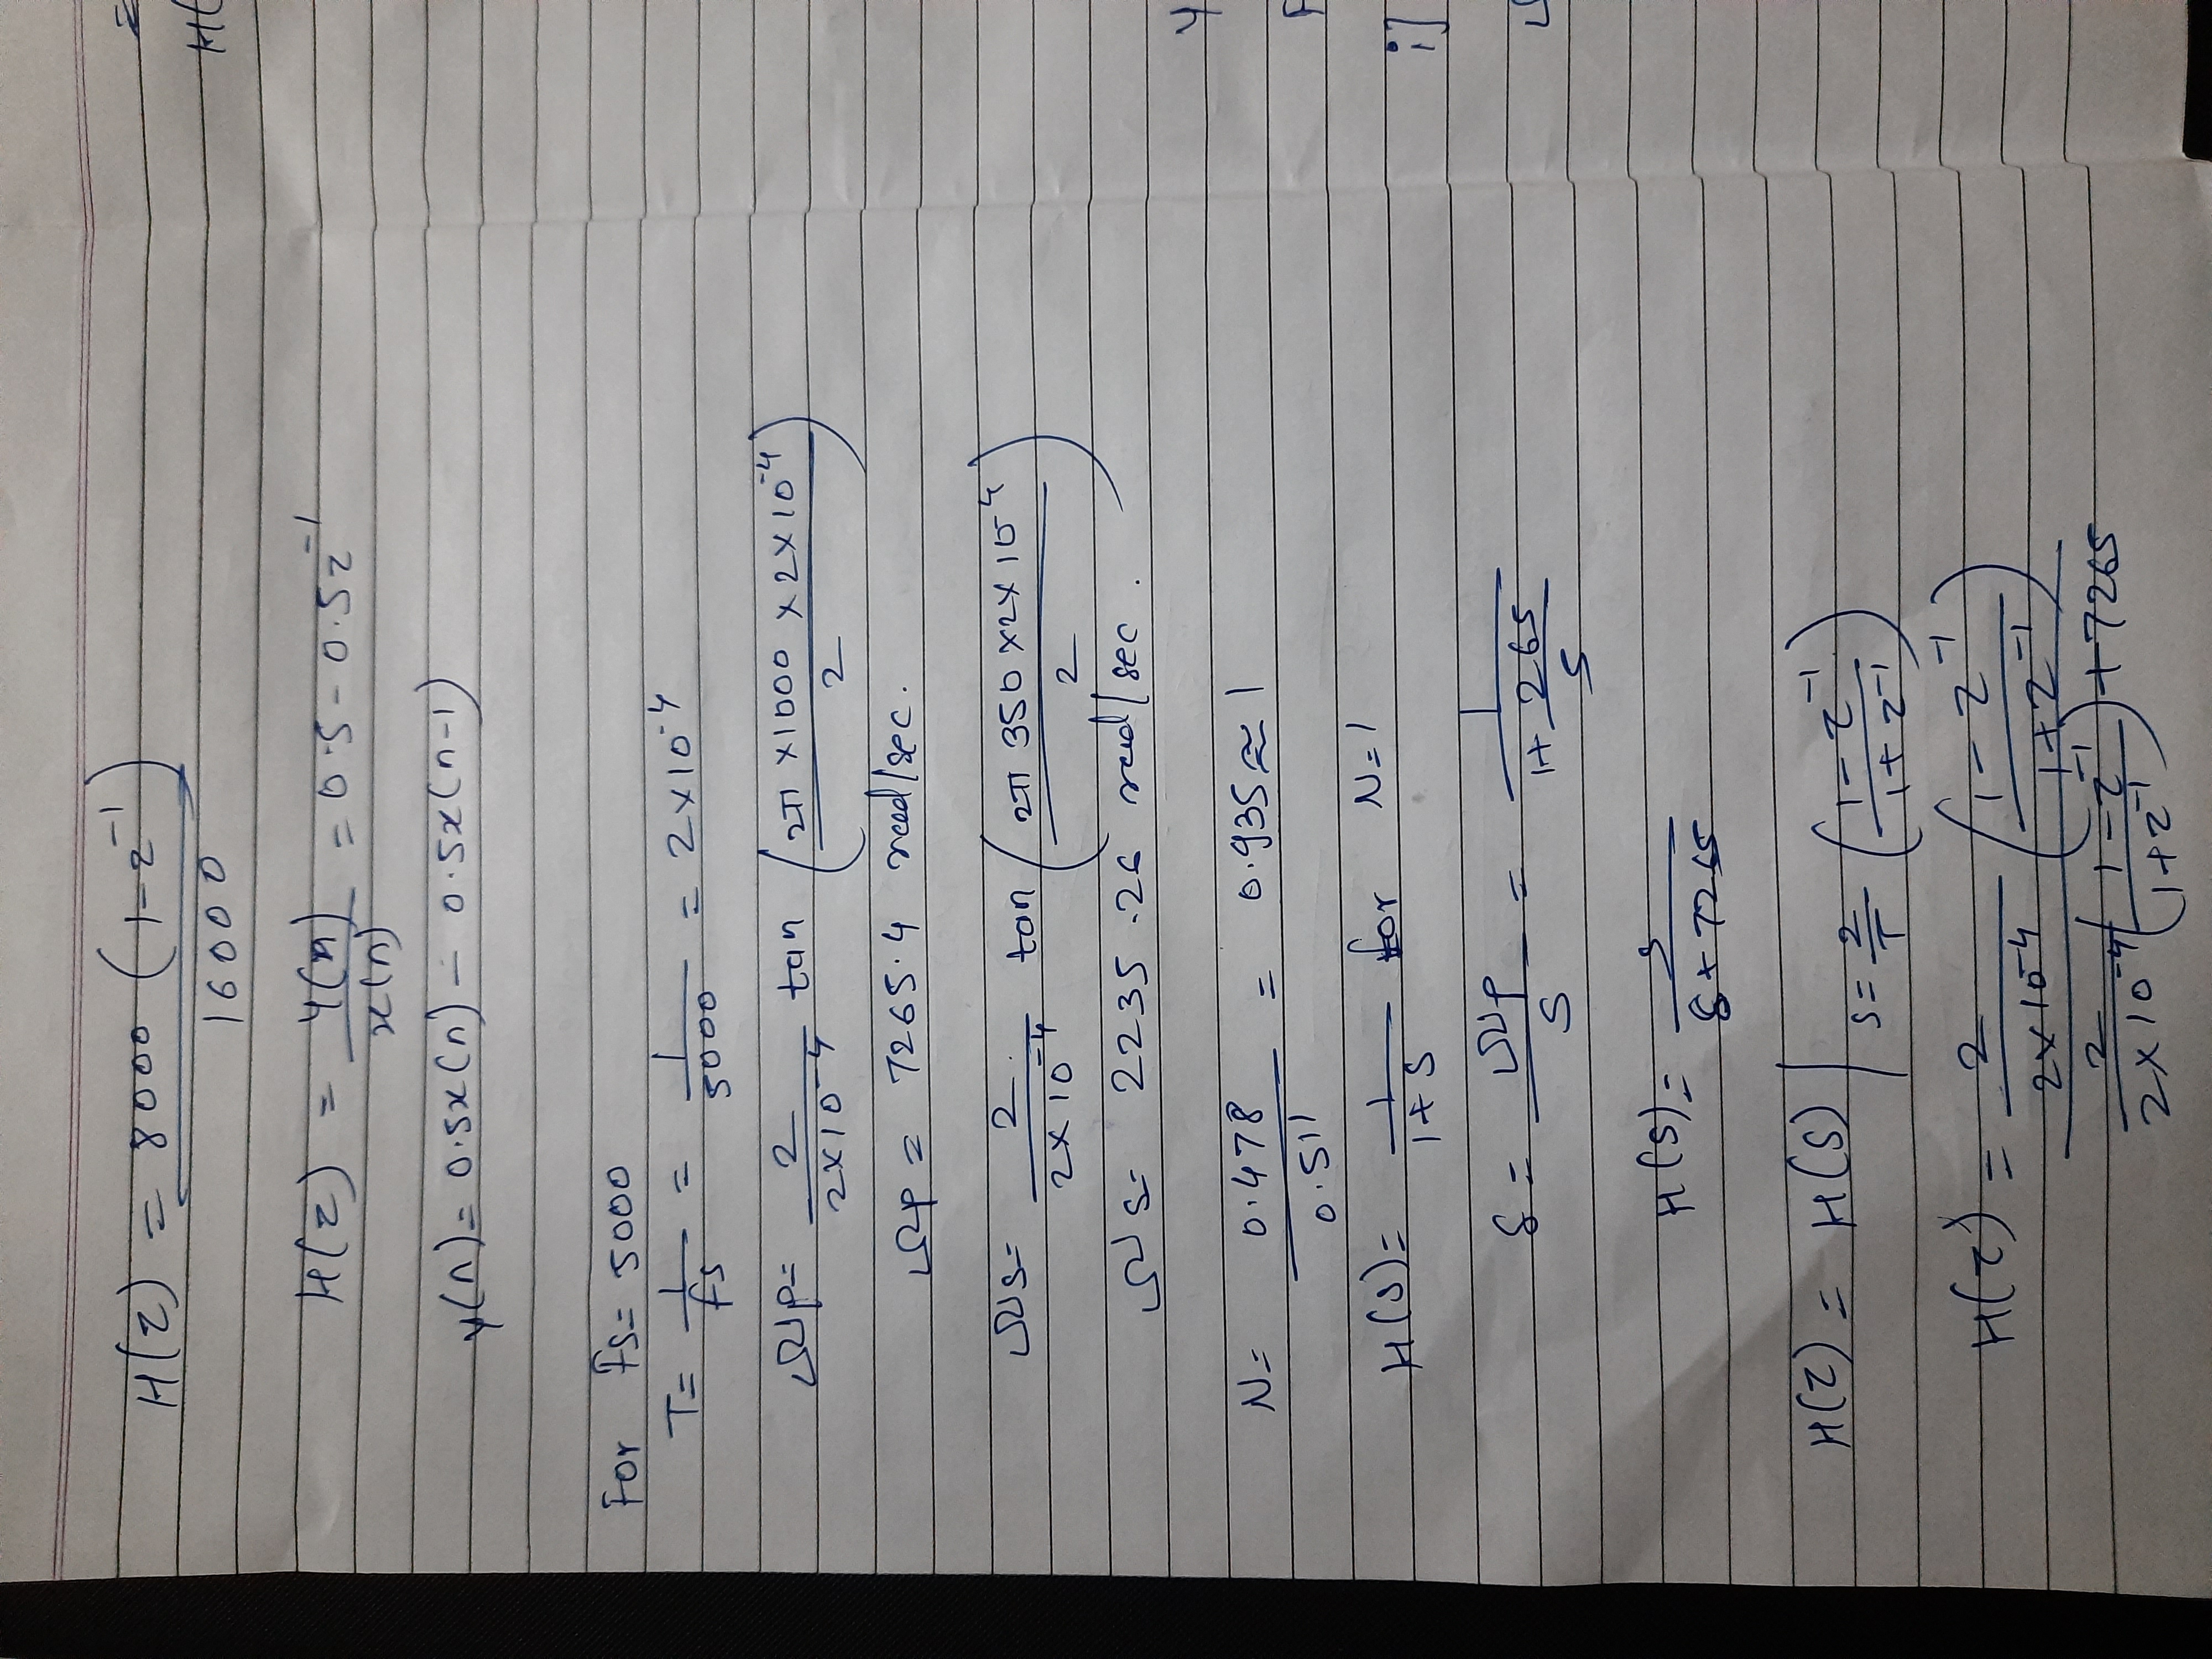 H(z) = 8000 (1-z⁻¹) / 16000
H(z) = Y(n) / x(n) = 0.5 - 0.5z⁻¹
y(n) = 0.5x(n) - 0.5x(n-1)
For fs = 5000
T = 1/fs = 1/5000 = 2×10⁻⁴
Ωp = 2 / (2×10⁻⁴) tan (2π × 1000 × 2×10⁻⁴ / 2)
Ωp = 7265.4 rad/sec.
Ωs = 2 / (2×10⁻⁴) tan (2π 350 ×2×10⁻⁴ / 2)
Ωs = 2235.26 rad/sec.
N = 0.478 / 0.511 = 0.935 ≈ 1
H(s) = 1 / (1+s) for N=1
s = Ωp / s = 1 / (1 + 265/s)
H(s) = s / (s + 7265)
H(z) = H(s) | s = 2/T (1-z⁻¹ / 1+z⁻¹)
H(z) = 2 / (2×10⁻⁴) (1-z⁻¹ / 1+z⁻¹)
2 / (2×10⁻⁴) (1-z⁻¹ / 1+z⁻¹) + 7265
H(
Y
i]